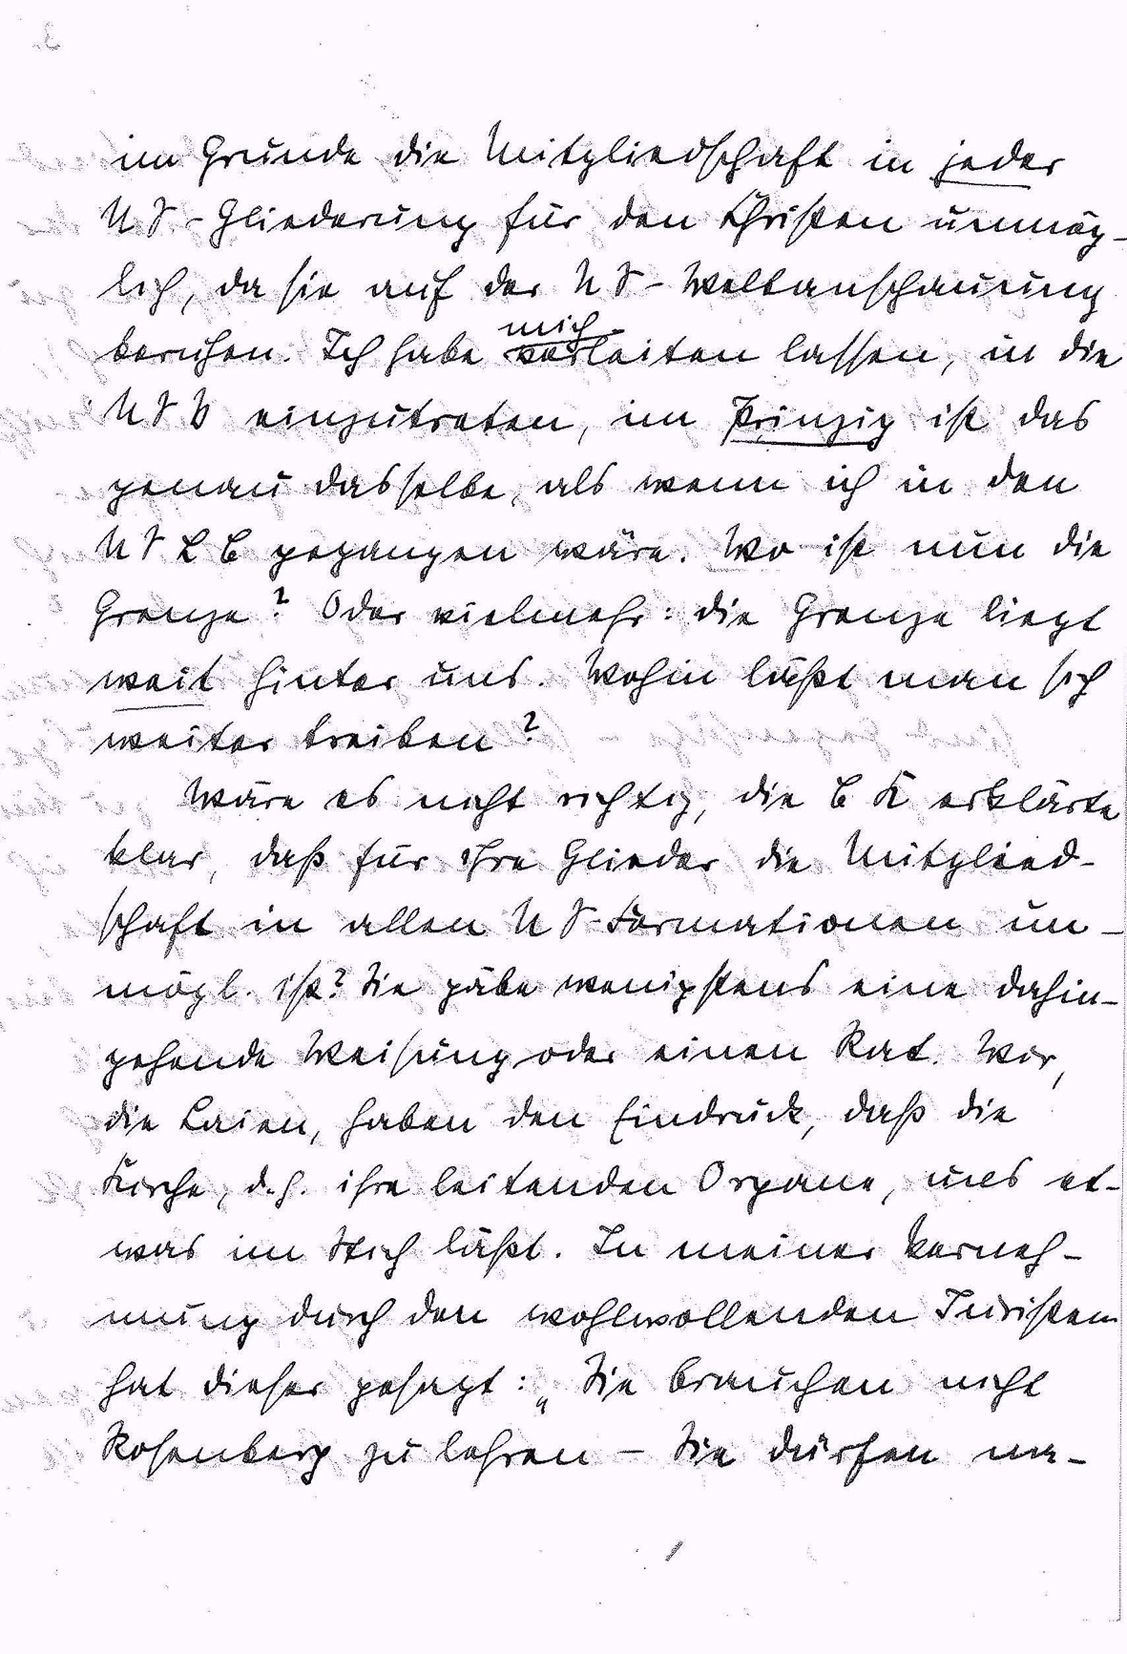 im Grunde die Mitgliedschaft in jeder
NS-Gliederung für den Christen unmög-
lich, da sie auf der NS-Weltanschauung
beruhen. Ich habe mich verleiten lassen, in die
NSV einzutreten, im Prinzip ist das
genau dasselbe, als wenn ich in den
NSLB gegangen wäre. Wo ist nun die
Grenze? Oder vielmehr: die Grenze liegt
weit hinter uns. Wohin läßt man sich
weiter treiben?
Wäre es nicht richtig, die BK erklärte
klar, daß für ihre Glieder die Mitglied-
schaft in allen NS-Formationen un-
mögl. ist? Sie gäbe wenigstens eine dahin-
gehende Weisung oder einen Rat. Wir,
die Laien, haben den Eindruck, daß die
Kirche, d.h. ihre leitenden Organe, uns et-
was im Stich läßt. In meiner Verneh-
mung durch den wohlwollenden Juristen
hat dieser gesagt: „Sie brauchen nicht
Rosenberg zu lehren – Sie dürfen nur